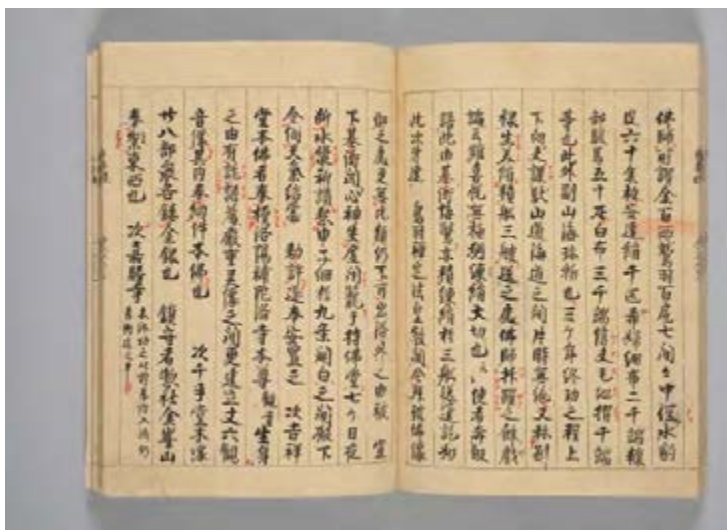 佛師所謂金百両鷲羽百尾七間々中徑水豹
皮六十余枚安達絹千疋希婦細布二千端糠
部駿馬五十疋白布三千端信夫毛地摺千端
等也此外副山海珎物也三ケ年終功之程上
下向夫課駄山道海道之間片時無絶又稱別
禄生美絹積船三艘送之處佛師抃躍之餘戯
論云雖喜悦無極猶練絹大切也云々使者奔歸
語此由基衡悔驚亦積練絹於三艘送遣訖如
此次第達 鳥羽禪定法皇叡聞令拜彼佛像
御之處更無比類仍不可出洛外之由被 宣
下基衡聞心神失度閇籠于持佛堂七ケ日夜
断水漿祈請愁申子細於九条関白之間殿下
令伺天氣給蒙 勅許遂奉安置之 次吉祥
堂本佛者奉摸洛陽補陀洛寺本尊觀音生身
之由有託語嚴重靈像之間更建立丈六觀
音像其内奉納件本佛也 次千手堂木像
廿八部衆各鏤金銀也 鎮守者惣社金峯山
奉崇東西也 次嘉勝寺未終功之以前基衡入滅仍
秀衡造之畢